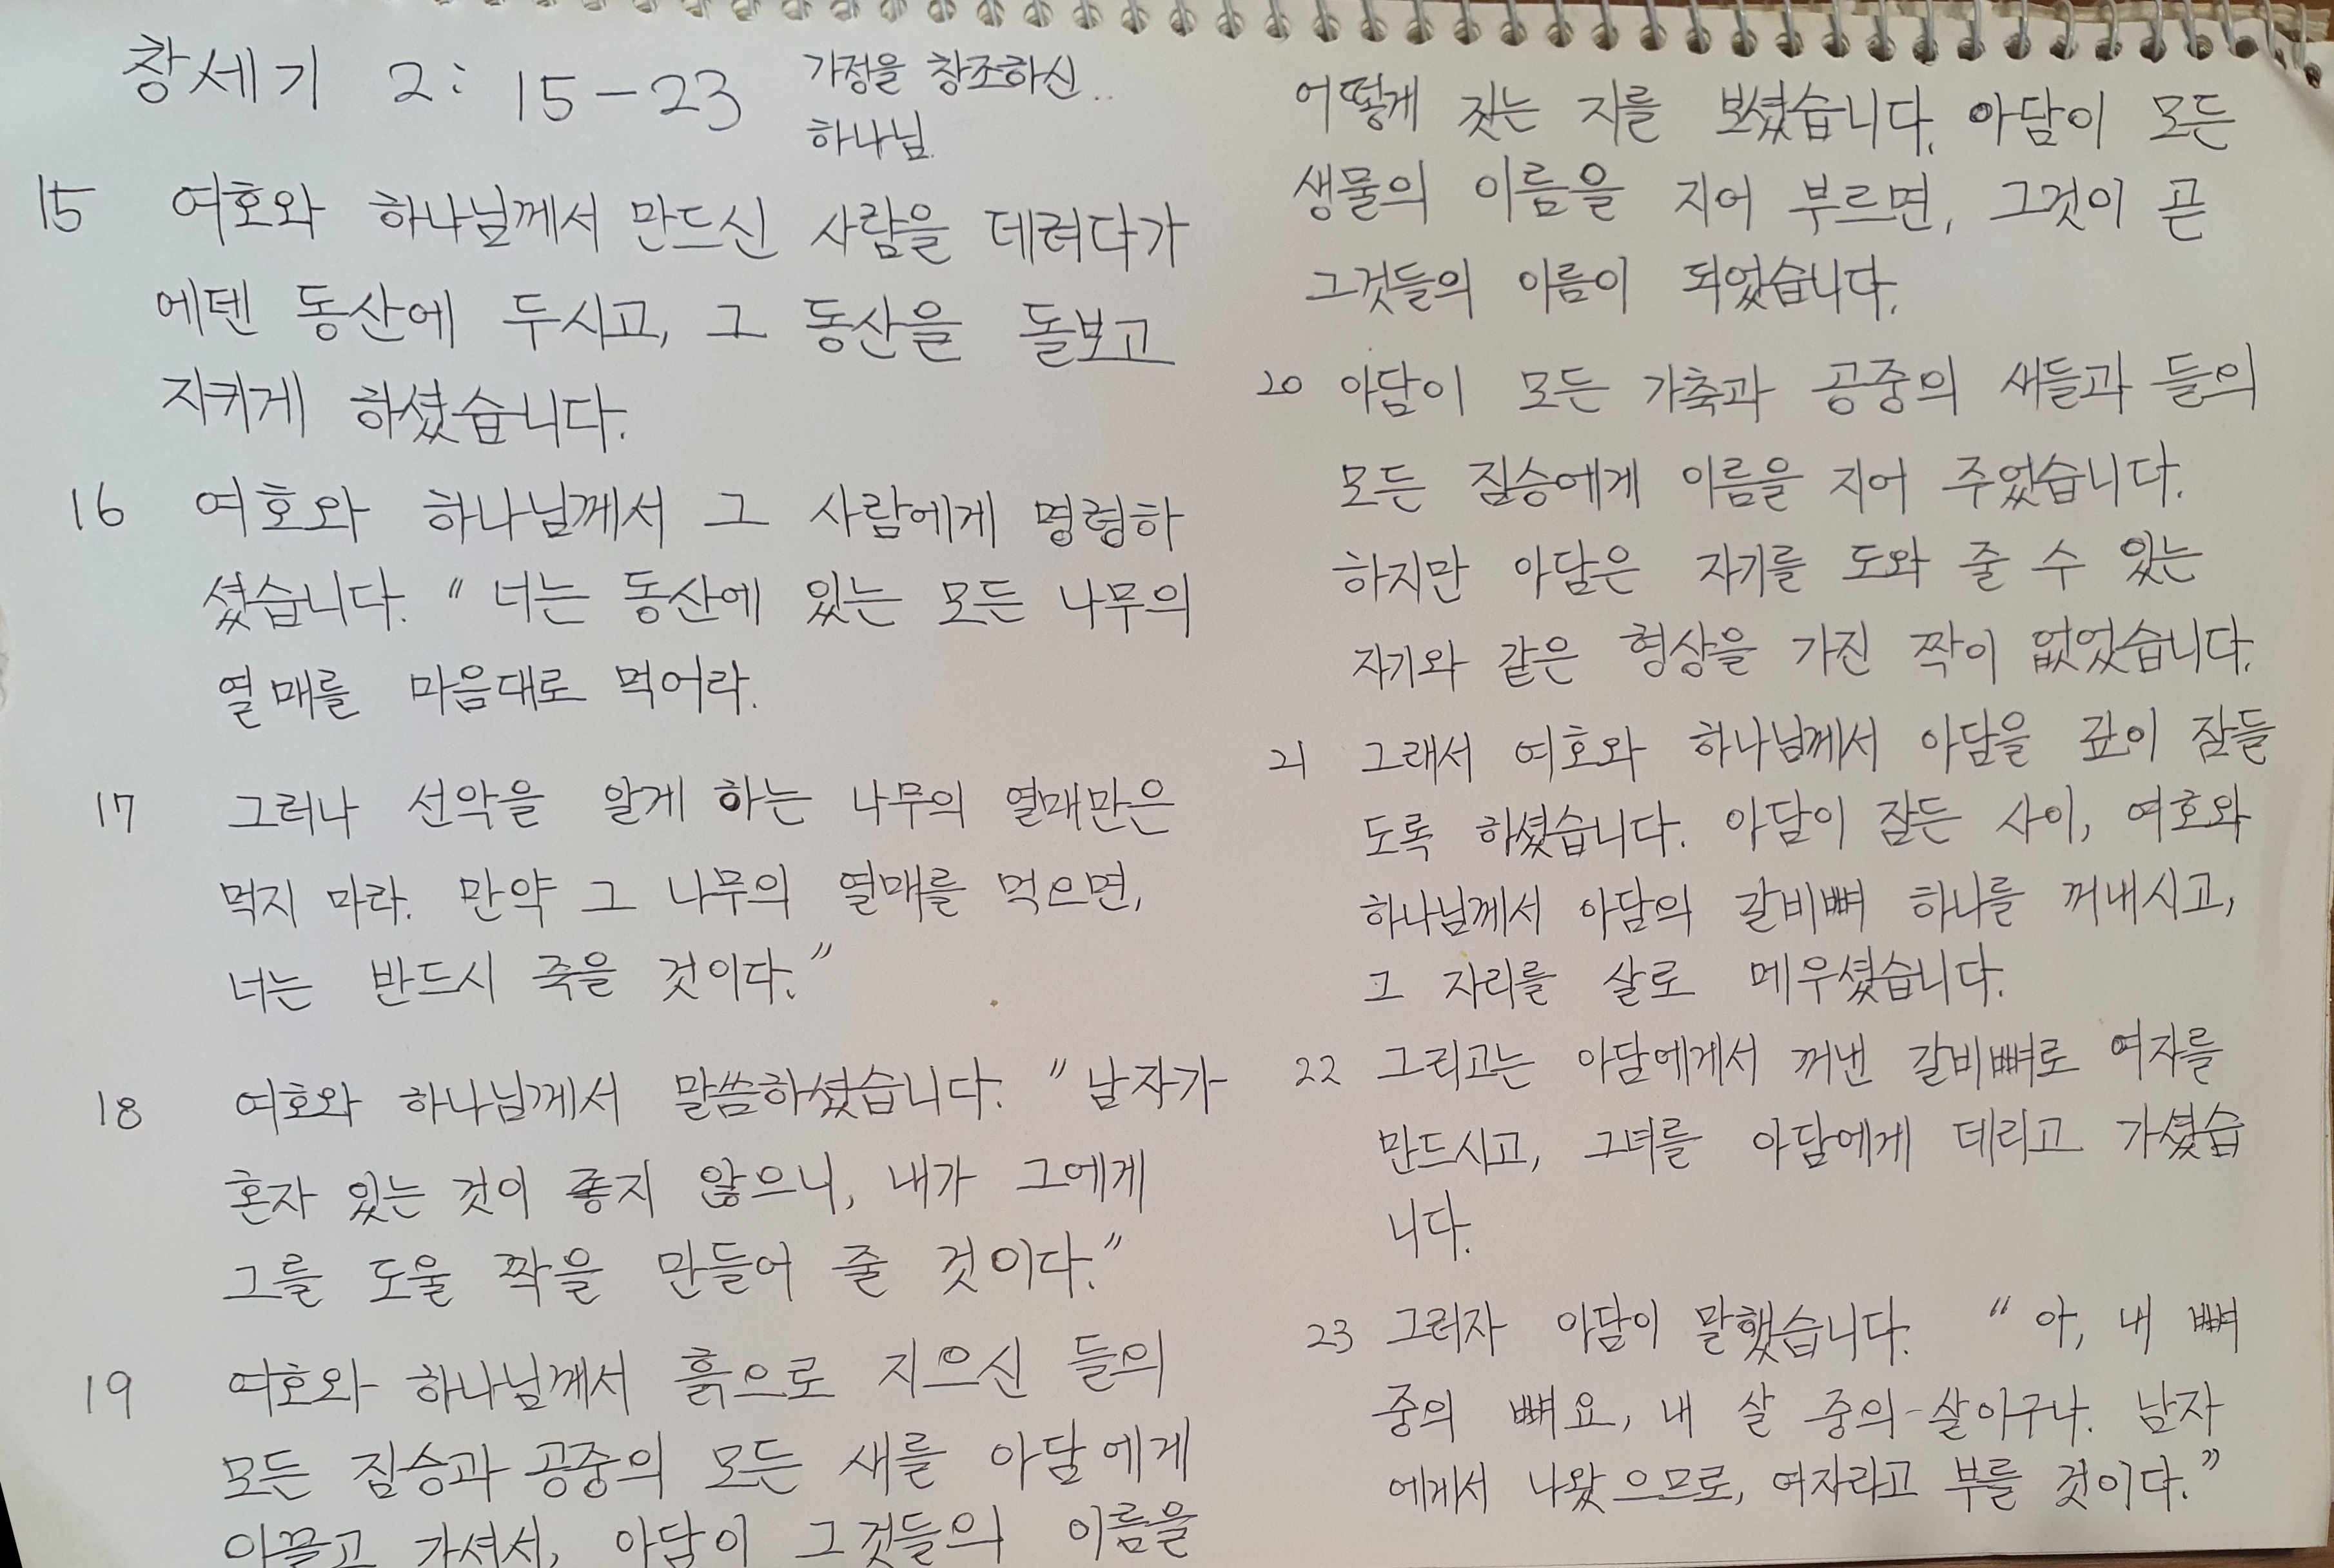 창세기 2: 15-23 가정을 창조하신..
하나님.
15 여호와 하나님께서 만드신 사람을 데려다가
에덴 동산에 두시고, 그 동산을 돌보고
지키게 하셨습니다.
16 여호와 하나님께서 그 사람에게 명령하
셨습니다. "너는 동산에 있는 모든 나무의
열매를 마음대로 먹어라.
17 그러나 선악을 알게 하는 나무의 열매만은
먹지 마라. 만약 그 나무의 열매를 먹으면,
너는 반드시 죽을 것이다."
18 여호와 하나님께서 말씀하셨습니다. "남자가
혼자 있는 것이 좋지 않으니, 내가 그에게
그를 도울 짝을 만들어 줄 것이다."
19 여호와 하나님께서 흙으로 지으신 들의
모든 짐승과 공중의 모든 새를 아담에게
이끌고 가셔서, 아담이 그것들의 이름을
어떻게 짓는 지를 보셨습니다. 아담이 모든
생물의 이름을 지어 부르면, 그것이 곧
그것들의 이름이 되었습니다.
20 아담이 모든 가축과 공중의 새들과 들의
모든 짐승에게 이름을 지어 주었습니다.
하지만 아담은 자기를 도와 줄 수 있는
자기와 같은 형상을 가진 짝이 없었습니다.
21 그래서 여호와 하나님께서 아담을 깊이 잠들
도록 하셨습니다. 아담이 잠든 사이, 여호와
하나님께서 아담의 갈비뼈 하나를 꺼내시고,
그 자리를 살로 메우셨습니다.
22 그리고는 아담에게서 꺼낸 갈비뼈로 여자를
만드시고, 그녀를 아담에게 데리고 가셨습
니다.
23 그러자 아담이 말했습니다. "아, 내 뼈
중의 뼈요, 내 살 중의 살이구나. 남자
에게서 나왔으므로, 여자라고 부를 것이다."